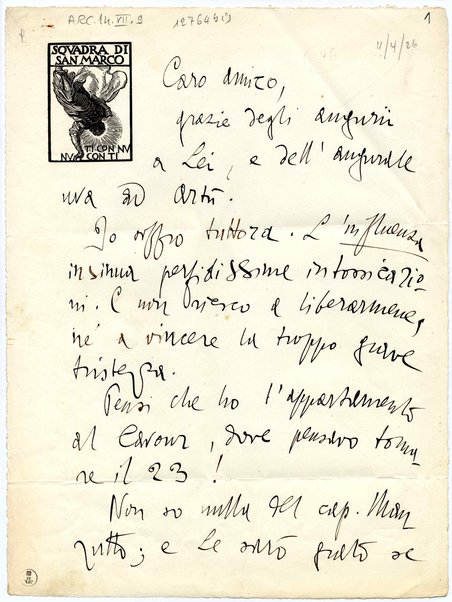 ARC.14.VII.9
12764bis
1
11/4/26
SQVADRA DI
SAN MARCO
TI CON NV
NV CON TI
Caro amico,
grazie degli augurii
a Lei, e dell'augurale
uva ad Artù.
Io soffro tuttora. L'influenza
insinua perfidissime intossicazio-
ni. E non riesco a liberarmene,
né a vincere la troppo grave
tristezza.
Pensi che ho l'appartamento
al Cavour, dove pensavo torna-
re il 23!
Non so nulla del cap. Man
zutto; e Le sarò grato se